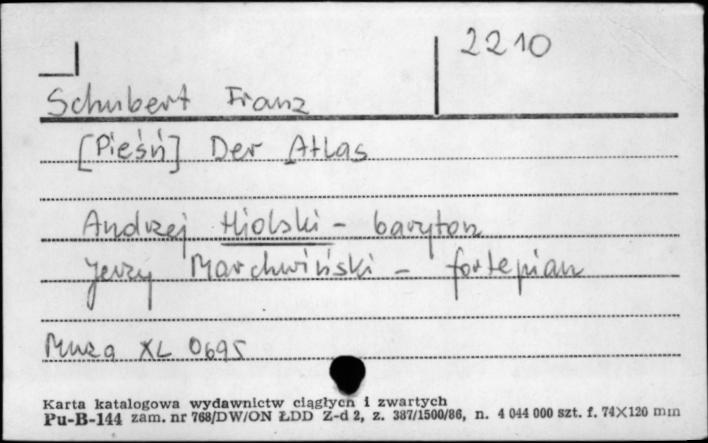 2210
Schubert Franz
[Pieśń] Der Atlas
Andrzej Hiolski - baryton
Jerzy Marchwiński - fortepian
Muza XL 0695
Karta katalogowa wydawnictw ciągłych i zwartych
Pu-B-144 zam. nr 768/DW/ON ŁDD Z-d 2, z. 387/1500/86, n. 4 044 000 szt. f. 74X120 mm